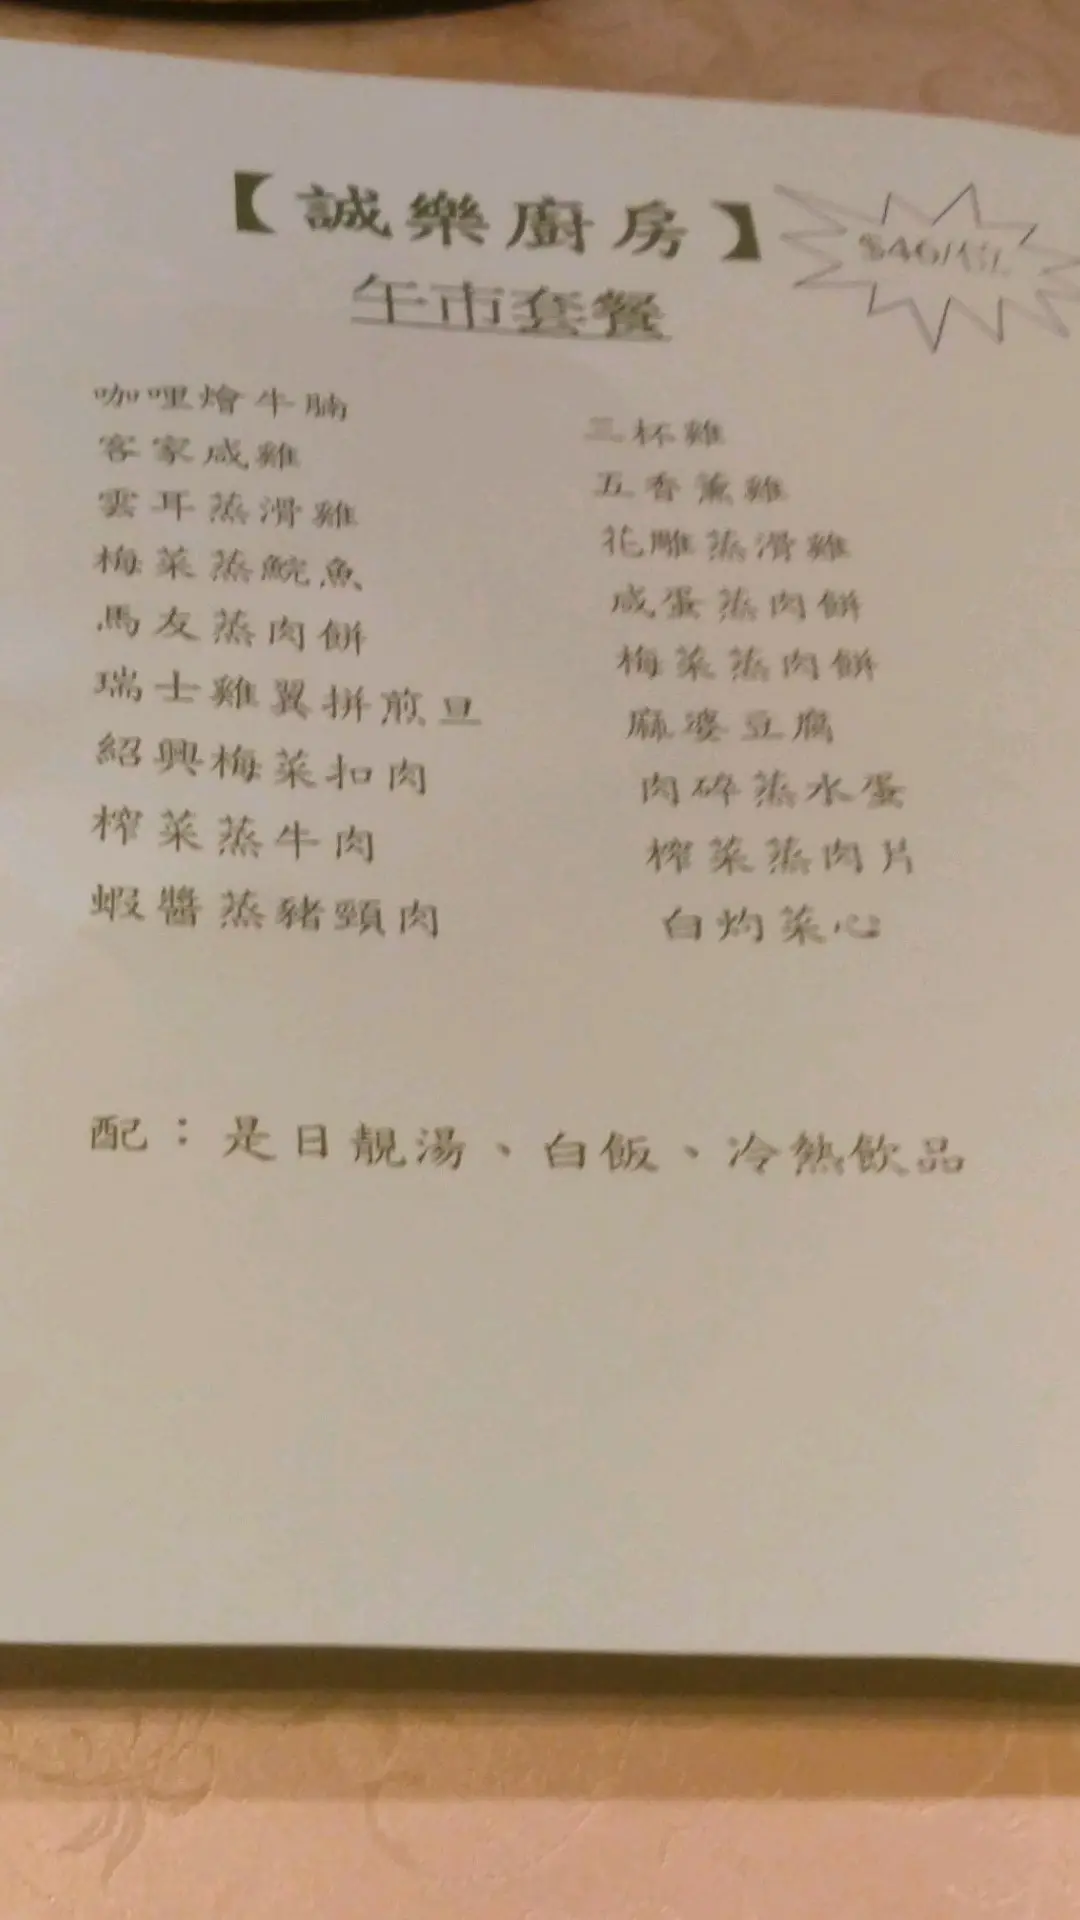 【誠樂廚房】
$46/位
午市套餐
咖哩燴牛腩
客家咸雞
雲耳蒸滑雞
梅菜蒸鯇魚
馬友蒸肉餅
瑞士雞翼拼煎旦
紹興梅菜扣肉
榨菜蒸牛肉
蝦醬蒸豬頸肉
三杯雞
五香薰雞
花雕蒸滑雞
咸蛋蒸肉餅
梅菜蒸肉餅
麻婆豆腐
肉碎蒸水蛋
榨菜蒸肉片
白灼菜心
配：是日靚湯、白飯、冷熱飲品